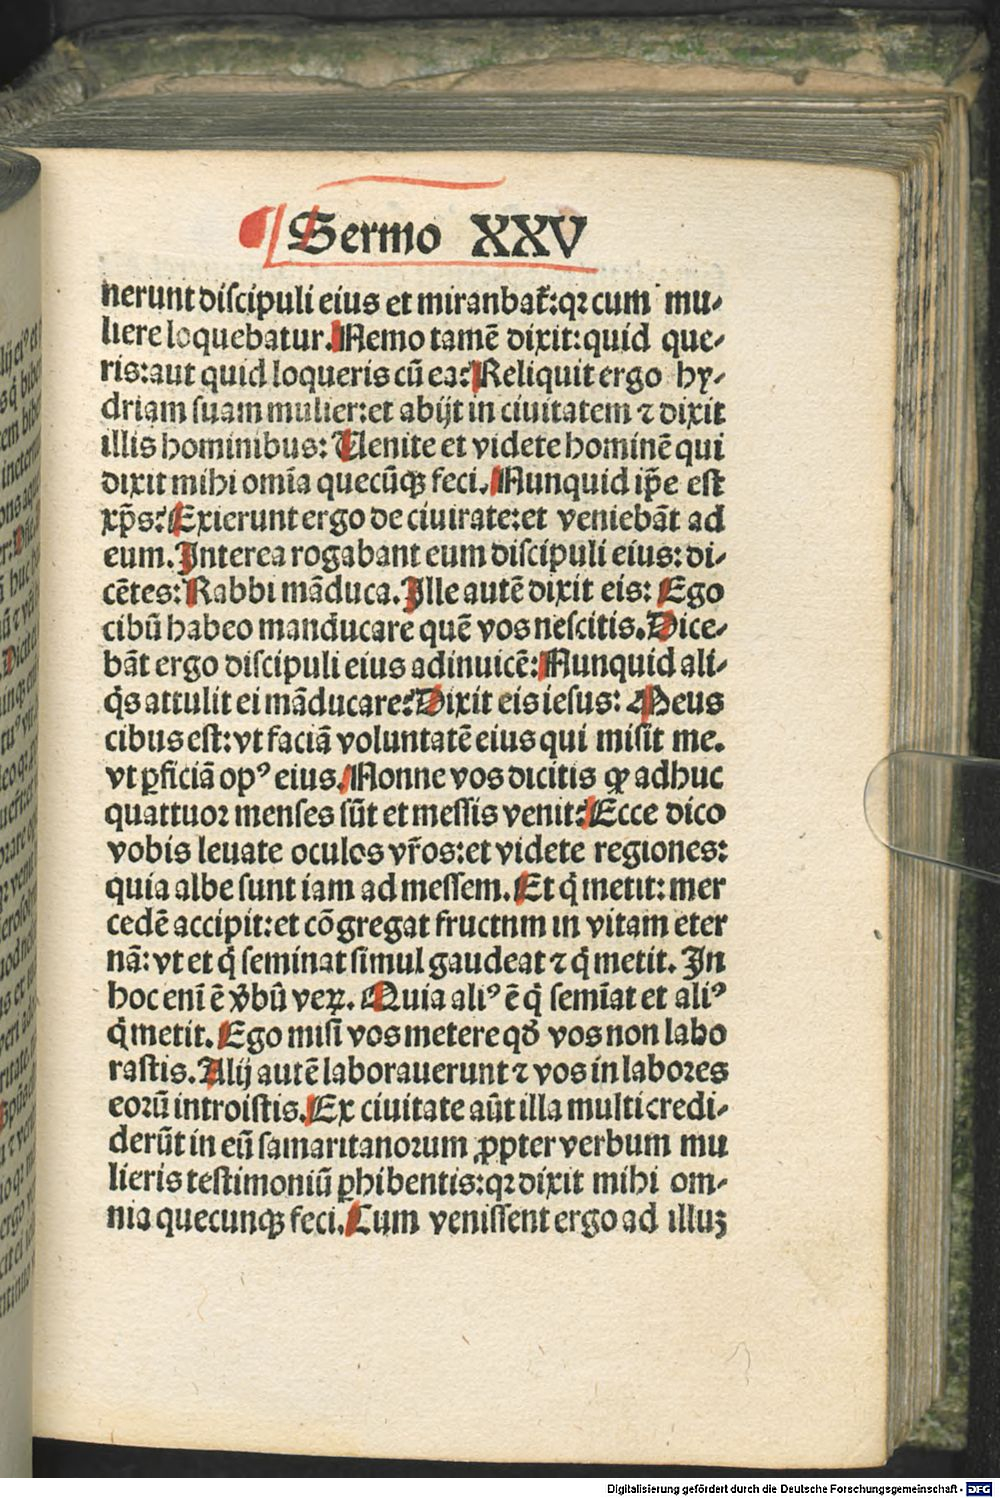 Sermo XXV
nerunt discipuli eius et miranbat̃: qꝛ cum mu-
liere loquebatur. Nemo tamē dixit: quid que-
ris: aut quid loqueris cū ea? Reliquit ergo hy-
driam suam mulier: et abijt in ciuitatem ⁊ dixit
illis hominibus: Uenite et videte hominē qui
dixit mihi omīa quecūqꝫ feci. Nunquid ip̄e est
xp̄s? Exierunt ergo de ciuirate: et veniebāt ad
eum. Interea rogabant eum discipuli eius: di-
cētes: Rabbi māduca. Ille autē dixit eis: Ego
cibū habeo manducare quē vos nescitis. Dice-
bāt ergo discipuli eius adinuicē: Nunquid ali-
q̇s attulit ei māducare? Dixit eis iesus: Meus
cibus est: vt faciā voluntatē eius qui misit me.
vt ꝑficiā opꝰ eius. Nonne vos dicitis ꝙ adhuc
quattuor menses sūt et messis venit? Ecce dico
vobis leuate oculos vr̄os: et videte regiones:
quia albe sunt iam ad messem. Et q̇ metit: mer
cedē accipit: et cōgregat fructnm in vitam eter
nā: vt et q̇ seminat simul gaudeat ⁊ q̇ metit. In
hoc eni ē v̄bū veꝝ. Quia aliꝰ ē q̇ semīat et aliꝰ
q̇ metit. Ego misi vos metere qd̄ vos non labo
rastis. Alij autē laborauerunt ⁊ vos in labores
eorū introistis. Ex ciuitate aūt illa multi credi-
derūt in eū samaritanorum ꝓpter verbum mu
lieris testimoniū ꝑhibentis: qꝛ dixit mihi om-
nia quecunqꝫ feci. Cum venissent ergo ad illuꝫ
Digitalisierung gefördert durch die Deutsche Forschungsgemeinschaft - DFG